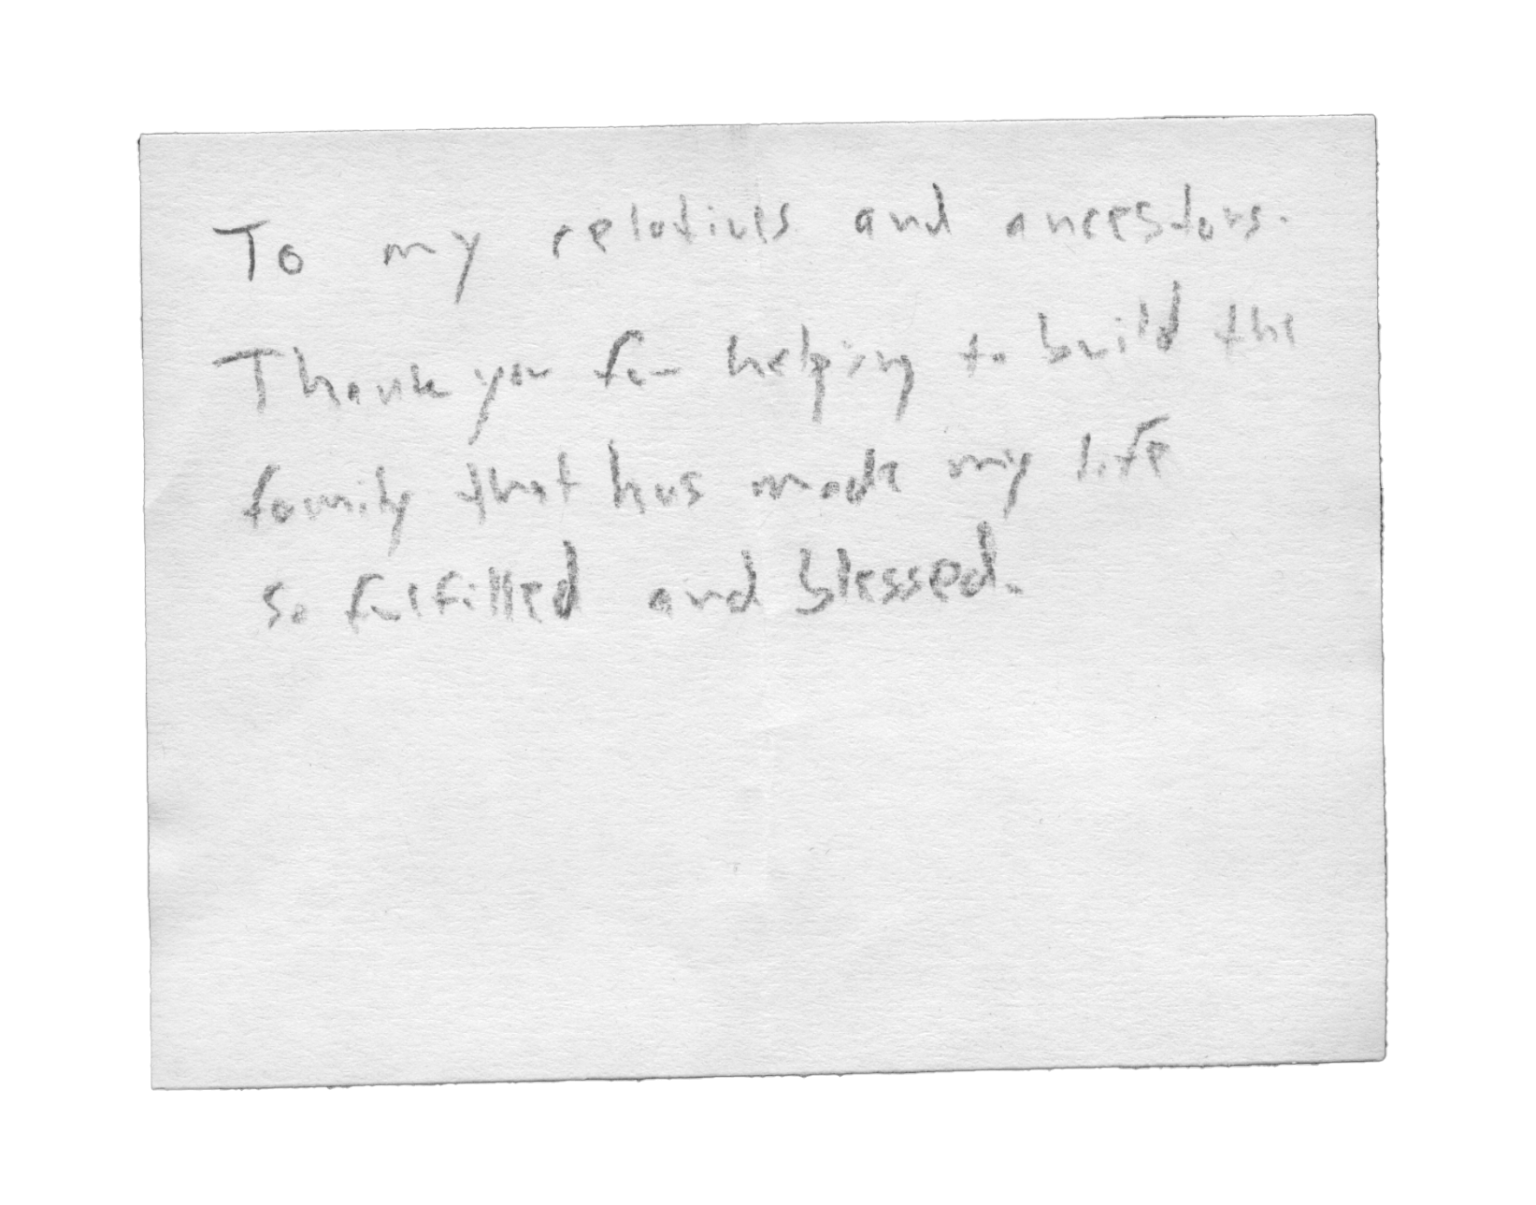 To my relatives and ancestors.
Thank you for helping to build the
family that has made my life
so fulfilled and blessed.